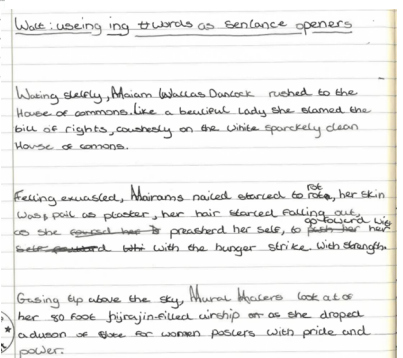 Walt: useing ing words as sentance openers
Waxing skelfly, Maiam Wallas Dancock rushed to the
House of commons. Like a beutiful Lady she slamed the
bill of rights, coushesly on the white sparckely clean
House of comons.
Felling exuasled, Mairams nailed starced to rot, her skin
was pail as plaster, her hair starced falling out,
as she preasherd her self, to go foward with her
with the hunger strike with strength.
Gasing up above the sky, Mural Macers look at of
her 80 foot hijrajin-filled airship as she droped
a duson of for women posters with pride and
power.